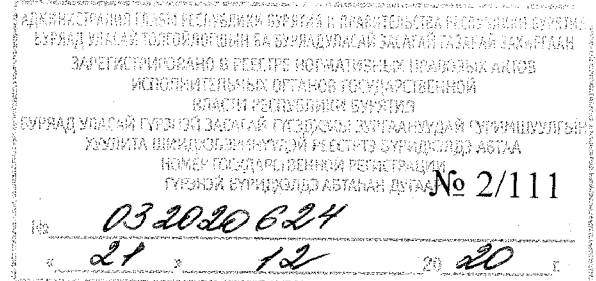 АДМИНИСТРАЦИЯ ГЛАВЫ РЕСПУБЛИКИ БУРЯТИЯ И ПРАВИТЕЛЬСТВА РЕСПУБЛИКИ БУРЯТИЯ
БУРЯАД УЛАСАЙ ТОЛГОЙЛОГШЫН БА БУРЯАД УЛАСАЙ ЗАСАГАЙ ГАЗАРАЙ ЗАХИРГААН
ЗАРЕГИСТРИРОВАНО В РЕЕСТРЕ НОРМАТИВНЫХ ПРАВОВЫХ АКТОВ
ИСПОЛНИТЕЛЬНЫХ ОРГАНОВ ГОСУДАРСТВЕННОЙ
ВЛАСТИ РЕСПУБЛИКИ БУРЯТИЯ
БУРЯАД УЛАСАЙ ГҮРЭНЭЙ ЗАСАГАЙ ГҮЙСЭДХЭХЫ ЗУРГААНУУДАЙ ГУРИМШУУЛГЫН
ХУУЛИТА РЕЕСТРТЭ БҮРИДХЭЛДЭ АБТАА
НОМЕР ГОСУДАРСТВЕННОЙ РЕГИСТРАЦИИ
ГҮРЭНЭЙ БҮРИДХЭЛДЭ АБТАҺАН ДУГААР № 2/111
№ 032020624
« 21 » 12 20 20 г.